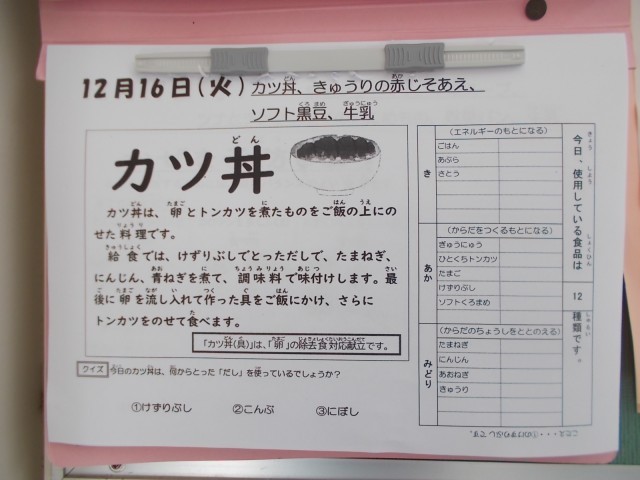 12月16日(火) カツ丼、きゅうりの赤じそあえ、
ソフト黒豆、牛乳
カツ丼
カツ丼は、卵とトンカツを煮たものをご飯の上にの
せた料理です。
給食では、けずりぶしでとっただしで、たまねぎ、
にんじん、青ねぎを煮て、調味料で味付けします。最
後に卵を流し入れて作った具をご飯にかけ、さらに
トンカツをのせて食べます。
「カツ丼(具)」は、「卵」の除去食対応献立です。
クイズ 今日のカツ丼は、何からとった「だし」を使っているでしょうか?
①けずりぶし ②こんぶ ③にぼし
今日、使用している食品は
12
種類です。
き
(エネルギーのもとになる)
ごはん
あぶら
さとう
あか
(からだをつくるもとになる)
ぎゅうにゅう
ひとくちトンカツ
たまご
けずりぶし
ソフトくろまめ
みどり
(からだのちょうしをととのえる)
たまねぎ
にんじん
あおねぎ
きゅうり
こたえ・・・・①のけずりぶしです。